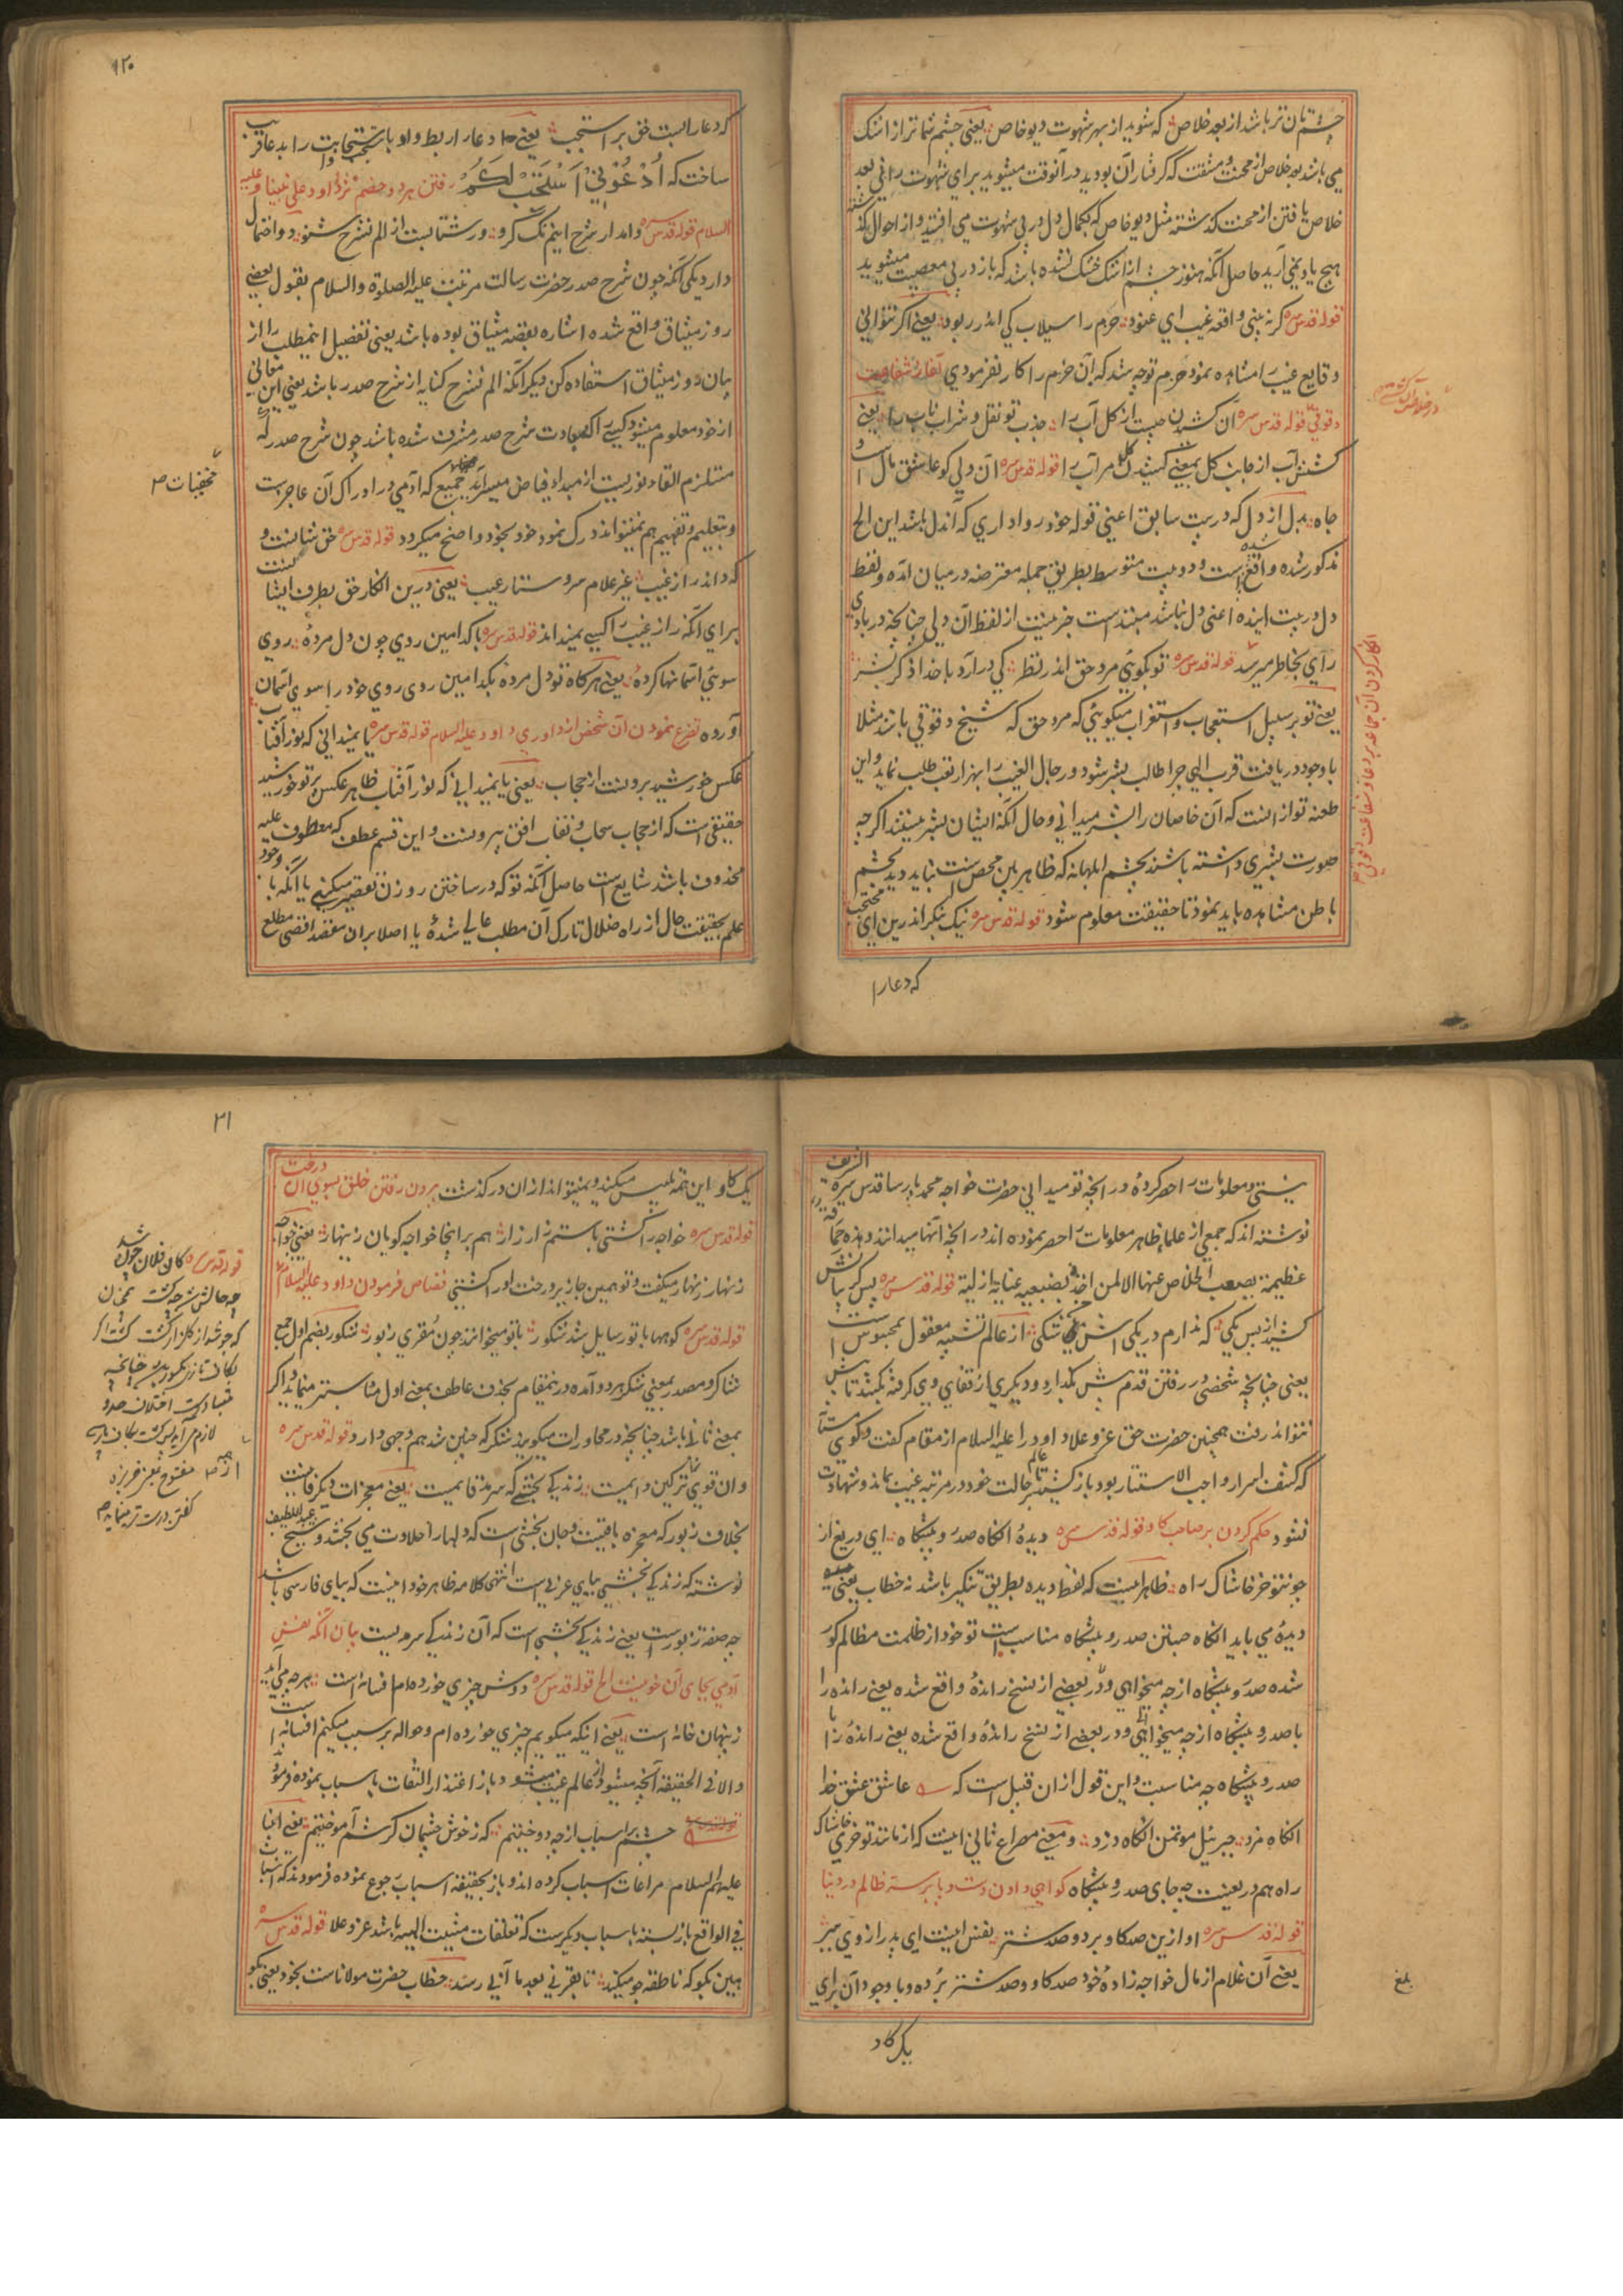 چشمتان تر باشد از بعد خلاص که شوید از بهر شهوت دیو خاص یعنی چشم شما تر از اشک
می باشد بعد خلاص از محنت و مشقت که گرفتار آن بودید در آنوقت میشوید برای شهوت رانی بعد
خلاص یافتن از محنت گذشته مثل دیو خاص که بکمال دل در پی شهوت می افتید و از احوال گذشته
هیچ یاد نمی آرید حاصل آنکه هنوز چشم از اشک خشک نشده باشد که باز در پی معصیت میشوید
قوله قدس سره گر نه بینی واقعه غیب ای عنود حزم را سیلاب کی اندر ربود یعنی اگر نتوانی
وقایع غیب را مشاهده نمود حزم را چه شد که آن حزم را کار نفرمودی آغاز شفاعت
دقوقی قوله قدس سره آن کشیدن چیست از کل آب را جذب تو نقل و شراب ناب را یعنی
کشش آب از جانب کل بمعنی کشیدن کل مر آب را قوله قدس سره آن دلی کو عاشق مال است و
جاه بدل از دل که در بیت سابق اعنی قوله خود روا داری که آن دل باشد این الخ
مذکور شده واقع شده است و دو بیت متوسط بطریق جمله معترضه در میان آمده و لفظ
دل در بیت آینده اعنی دل نباشد مبتداست خبر نیست از لفظ آن دلی چنانچه در بادی
رای بخاطر میرسد قوله قدس سره تو بگوئی مرد حق اندر نظر کی در آرد با خدا ذکر بشر
یعنی تو بر سبیل استعجاب و استغراب میگوئی که مرد حق که شیخ دقوقی باشد مثلا
با وجود دریافت قرب الهی چرا طالب بشر شود و رجال الغیب را بهزار تعب طلب نماید و این
طعنه تو از آنست که آن خاصان را بشر میدانی و حال آنکه ایشان بشر نیستند اگر چه
صورت بشری داشته باشند بچشم ابلهانه که ظاهر بین محض است نباید دید بچشم
باطن مشاهده باید نمود تا حقیقت معلوم شود قوله قدس سره نیک بنگر اندرین ای محتجب
که دعا را
انکار کردن آن جماعه بر دعا و شفاعت دقوقی
۱۲۰
که دعا را بست حق بر استجب یعنی دعا را ربط داد با استجابت را بدعا قریب
ساخت که اُدْعُونِيْ اَسْتَجِبْ لَكُمْ رفتن هر دو خصم نزد داود علی نبینا و علیه
السلام قوله قدس سره واندار شرح اینم تک گرو ور شتابست از الم نشرح شنو دو احتمال
دارد یکی آنکه چون شرح صدر حضرت رسالت مرتبت علیه الصلوة والسلام بقول بعضی
روز میثاق واقع شده اشاره بقصه میثاق بوده باشد یعنی تفصیل اینمطلب را از
بیان روز میثاق استفاده کن دیگر آنکه الم نشرح کنایه از شرح صدر باشد یعنی این معانی
از خود معلوم میشود کسی را که بسعادت شرح صدر مشرف شده باشد چون شرح صدر که
مستلزم القاء نوریست از مبداء فیاض میسر آید جمیع که آدمی در ادراک آن عاجز است
و بتعلیم و تفهیم هم نمیتواند درک نمود خود بخود واضح میگردد قوله قدس سره حق شناست و
که داند راز غیب غیر علام سر و ستار عیب یعنی درین انکار حق بطرف ایشانست
برای آنکه راز غیب را کسی نمیداند قوله قدس سره با کدامین روی چون دل مرده روی
سوی آسمانها کرده یعنی هر گاه تو دل مرده بکدامین روی روی خود را سوی آسمان
آورده تضرع نمودن آن شخص از داوری داود علیه السلام قوله قدس سره یا نمیدانی که نور آفتاب
عکس خورشید برونست از حجاب یعنی یا نمیدانی که نور آفتاب ظاهر عکس پرتو خورشید
حقیقی است که از حجاب سحاب و نقاب افق بیرونست و این قسم عطف که معطوف علیه
محذوف باشد شایع است حاصل آنکه تو که در ساختن روزن تقصیر میکنی یا آنکه با وجود
علم بحقیقت حال از راه ضلال تارک آن مطلب عالی شدهٔ یا اصلا بران مقصد اقصی مطلع
مخفیات
نیستی و معلومات را حصر کردهٔ در آنچه تو میدانی حضرت خواجه محمد پارسا قدس سره الشریف
نوشته اند که جمعی از علماء ظاهر معلومات را حصر نموده اند در آنچه آنها میدانند و هذه حماقة
عظیمة یصعب الخلاص عنها الا لمن اخذ بضبعیه عنایة ازلیة قوله قدس سره پس گریبانش
کشید از پس یکی که ندارم در یکی اش شکی از عالم تشبیه معقول بمحبوس است
یعنی چنانچه شخصی در رفتن قدم پیش نگذارد و دیگری از قفای وی گرفته بکشد تا پیش
نتواند رفت همچنین حضرت حق عز و علا داود را علیه السلام از مقام گفت و گوی مستی
که کشف اسرار واجب الاستتار بود باز کشید تا بر حالت خود در مرتبه غیب بماند و شهادت
نشود حکم کردن بر صاحب کاو قوله قدس سره دیدهٔ آنگاه صدر و پیشگاه ای دریغ از
چون تو خر خاشاک راه ظاهر آنست که لفظ دیده بطریق تنکیر باشد نه خطاب یعنی
دیدهٔ می باید آنگاه جستن صدر و پیشگاه مناسب است تو خود از ظلمت مظالم کور
شده صدر و پیشگاه از چه میخواهی و در بعضی از نسخ راندهٔ واقع شده یعنی رانده را
با صدر و پیشگاه از چه میخواهی و در بعضی از نسخ راندهٔ واقع شده یعنی راندهٔ را با
صدر و پیشگاه چه مناسبت و این قول از ان قبیل است که عاشق عشق خدا
آنگاه مزد جبرئیل مؤتمن آنگاه دزد و معنی مصراع ثانی اینست که از مانند تو خری خاشاک
راه هم دریغست چه جای صدر و پیشگاه گواهی دادن دست و پا بر سر ظالم در دنیا
قوله قدس سره او ازین صد گاو برد و صد شتر نفس اینست ای پدر از وی مبر
یعنی آن غلام از مال خواجه زادهٔ خود صد کاو و صد شتر برده و با وجود آن برای
یک گاو
بلغ
۲۱
یک کاو این همه تلبیس میکند و نمیتواند از ان در گذشت برون رفتن خلق بسوی آن درخت
قوله قدس سره خواجه را کشتی باستم زار زار هم بر اینجا خواجه گویان زینهار یعنی خواجه
زنهار زنهار میگفت و تو همین جا زیر درخت او را کشتی قصاص فرمودن داود علیه السلام
قوله قدس سره کوهها با تو رسایل شد شکور با تو میخوانند چون مقری زبور شکور بضم اول جمع
شاکر و مصدر بمعنی شکر هر دو آمده درینمقام بحذف عاطف بمعنی اول مناسبتر مینماید و اگر
بمعنی ثانی باشد چنانچه در محاورات میگویند شکر که چنین شد هم وجهی دارد قوله قدس سره
وان قوی تر زین همه کاین دایمست زندگی بخشی که سرمد قایمست یعنی معجزات دیگر فانیست
بخلاف زبور که معجزه باقیست و جان بخشی است که دلها را حلاوت می بخشد و شیخ عبد اللطیف
نوشته که زندگی بخشی بیای عربی است انتهی کلامه ظاهر خود اینست که بیای فارسی باشد
چه صفة زبور است یعنی زندگی بخشی است که آن زندگی سرمدیست بیان آنکه نفس
آدمی بجای آن خونیست الخ قوله قدس سره دوش چیزی خورده ام افسانه است هر چه می آید
ز پنهان خانه است یعنی اینکه میگویم چیزی خورده ام و حواله بر سبب میکنم افسانه است
والا فی الحقیقه آنچه میشود از عالم غیب میشود و باز اعتذار التفات باسباب نموده فرمود
چشم بر اسباب از چه دوختیم که ز خوش چشمان کرشم آموختیم یعنی انبیا
علیهم السلام مراعات اسباب کرده اند و باز بحقیقة اسباب رجوع نموده فرمودند که اسباب
فی الواقع باز بسته باسباب دیگرست که تعلقات مشیت الهیه باشد عز و علا قوله قدس سره
هین بگو که ناطقه جو میکند تا بقرنی بعد ما آبی رسد خطاب حضرت مولاناست بخود یعنی بگو
قوله قدس سره کان فلان چون شد